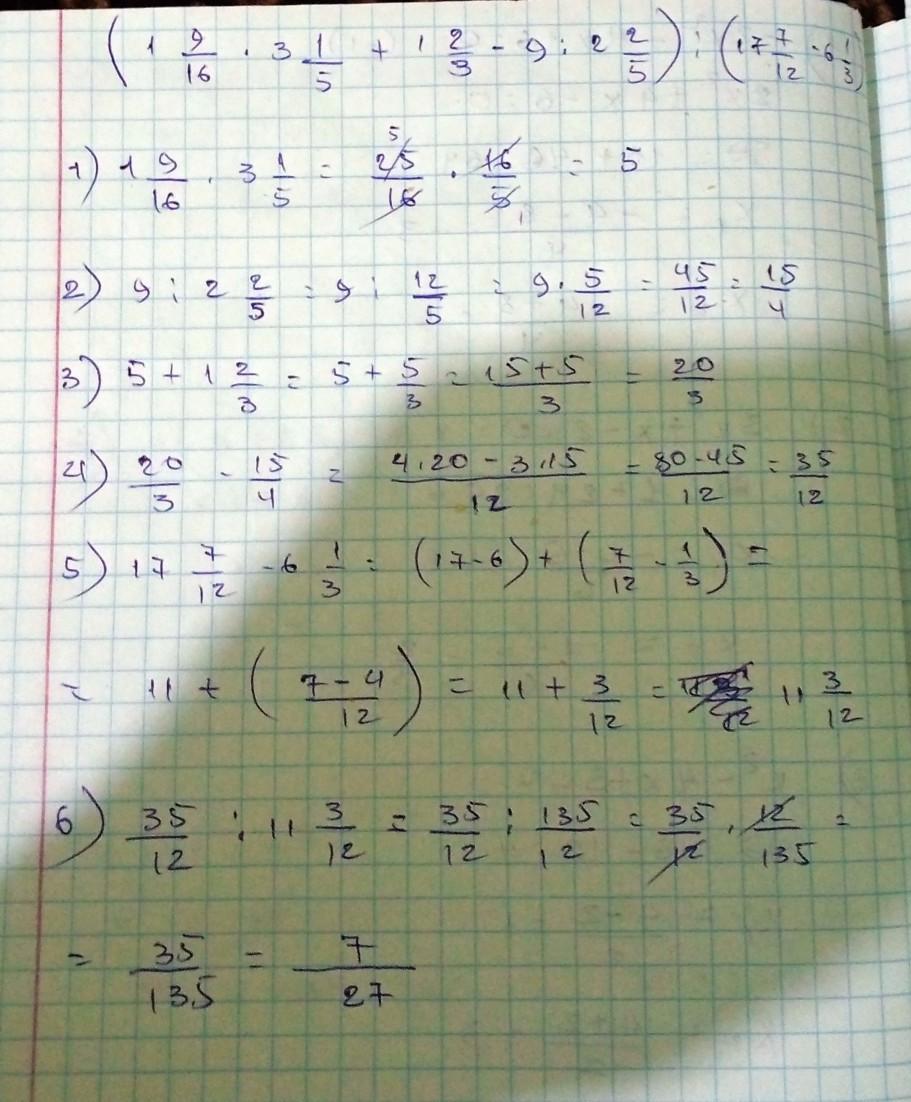 (1 9/16 · 3 1/5 + 1 2/3 - 9 : 2 2/5) : (17 7/12 - 6 1/3)
1) 1 9/16 · 3 1/5 = 25/16 · 16/5 = 5
2) 9 : 2 2/5 = 9 : 12/5 = 9 · 5/12 = 45/12 = 15/4
3) 5 + 1 2/3 = 5 + 5/3 = 15+5/3 = 20/3
4) 20/3 - 15/4 = 4·20 - 3·15/12 = 80-45/12 = 35/12
5) 17 7/12 - 6 1/3 = (17-6) + (7/12 - 1/3) =
= 11 + (7-4/12) = 11 + 3/12 = 11 3/12
6) 35/12 : 11 3/12 = 35/12 : 135/12 = 35/12 · 12/135 =
= 35/135 = 7/27